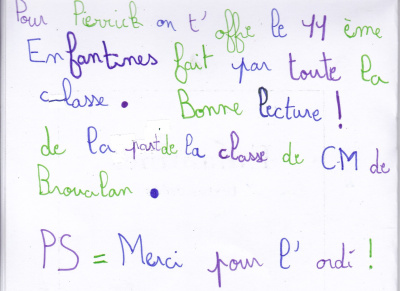 Pour Pierrick on t' offre le 44 ème
Enfantines fait par toute la
classe. Bonne lecture !
de la part de la classe de CM de
Broualan.
PS = Merci pour l' ordi !